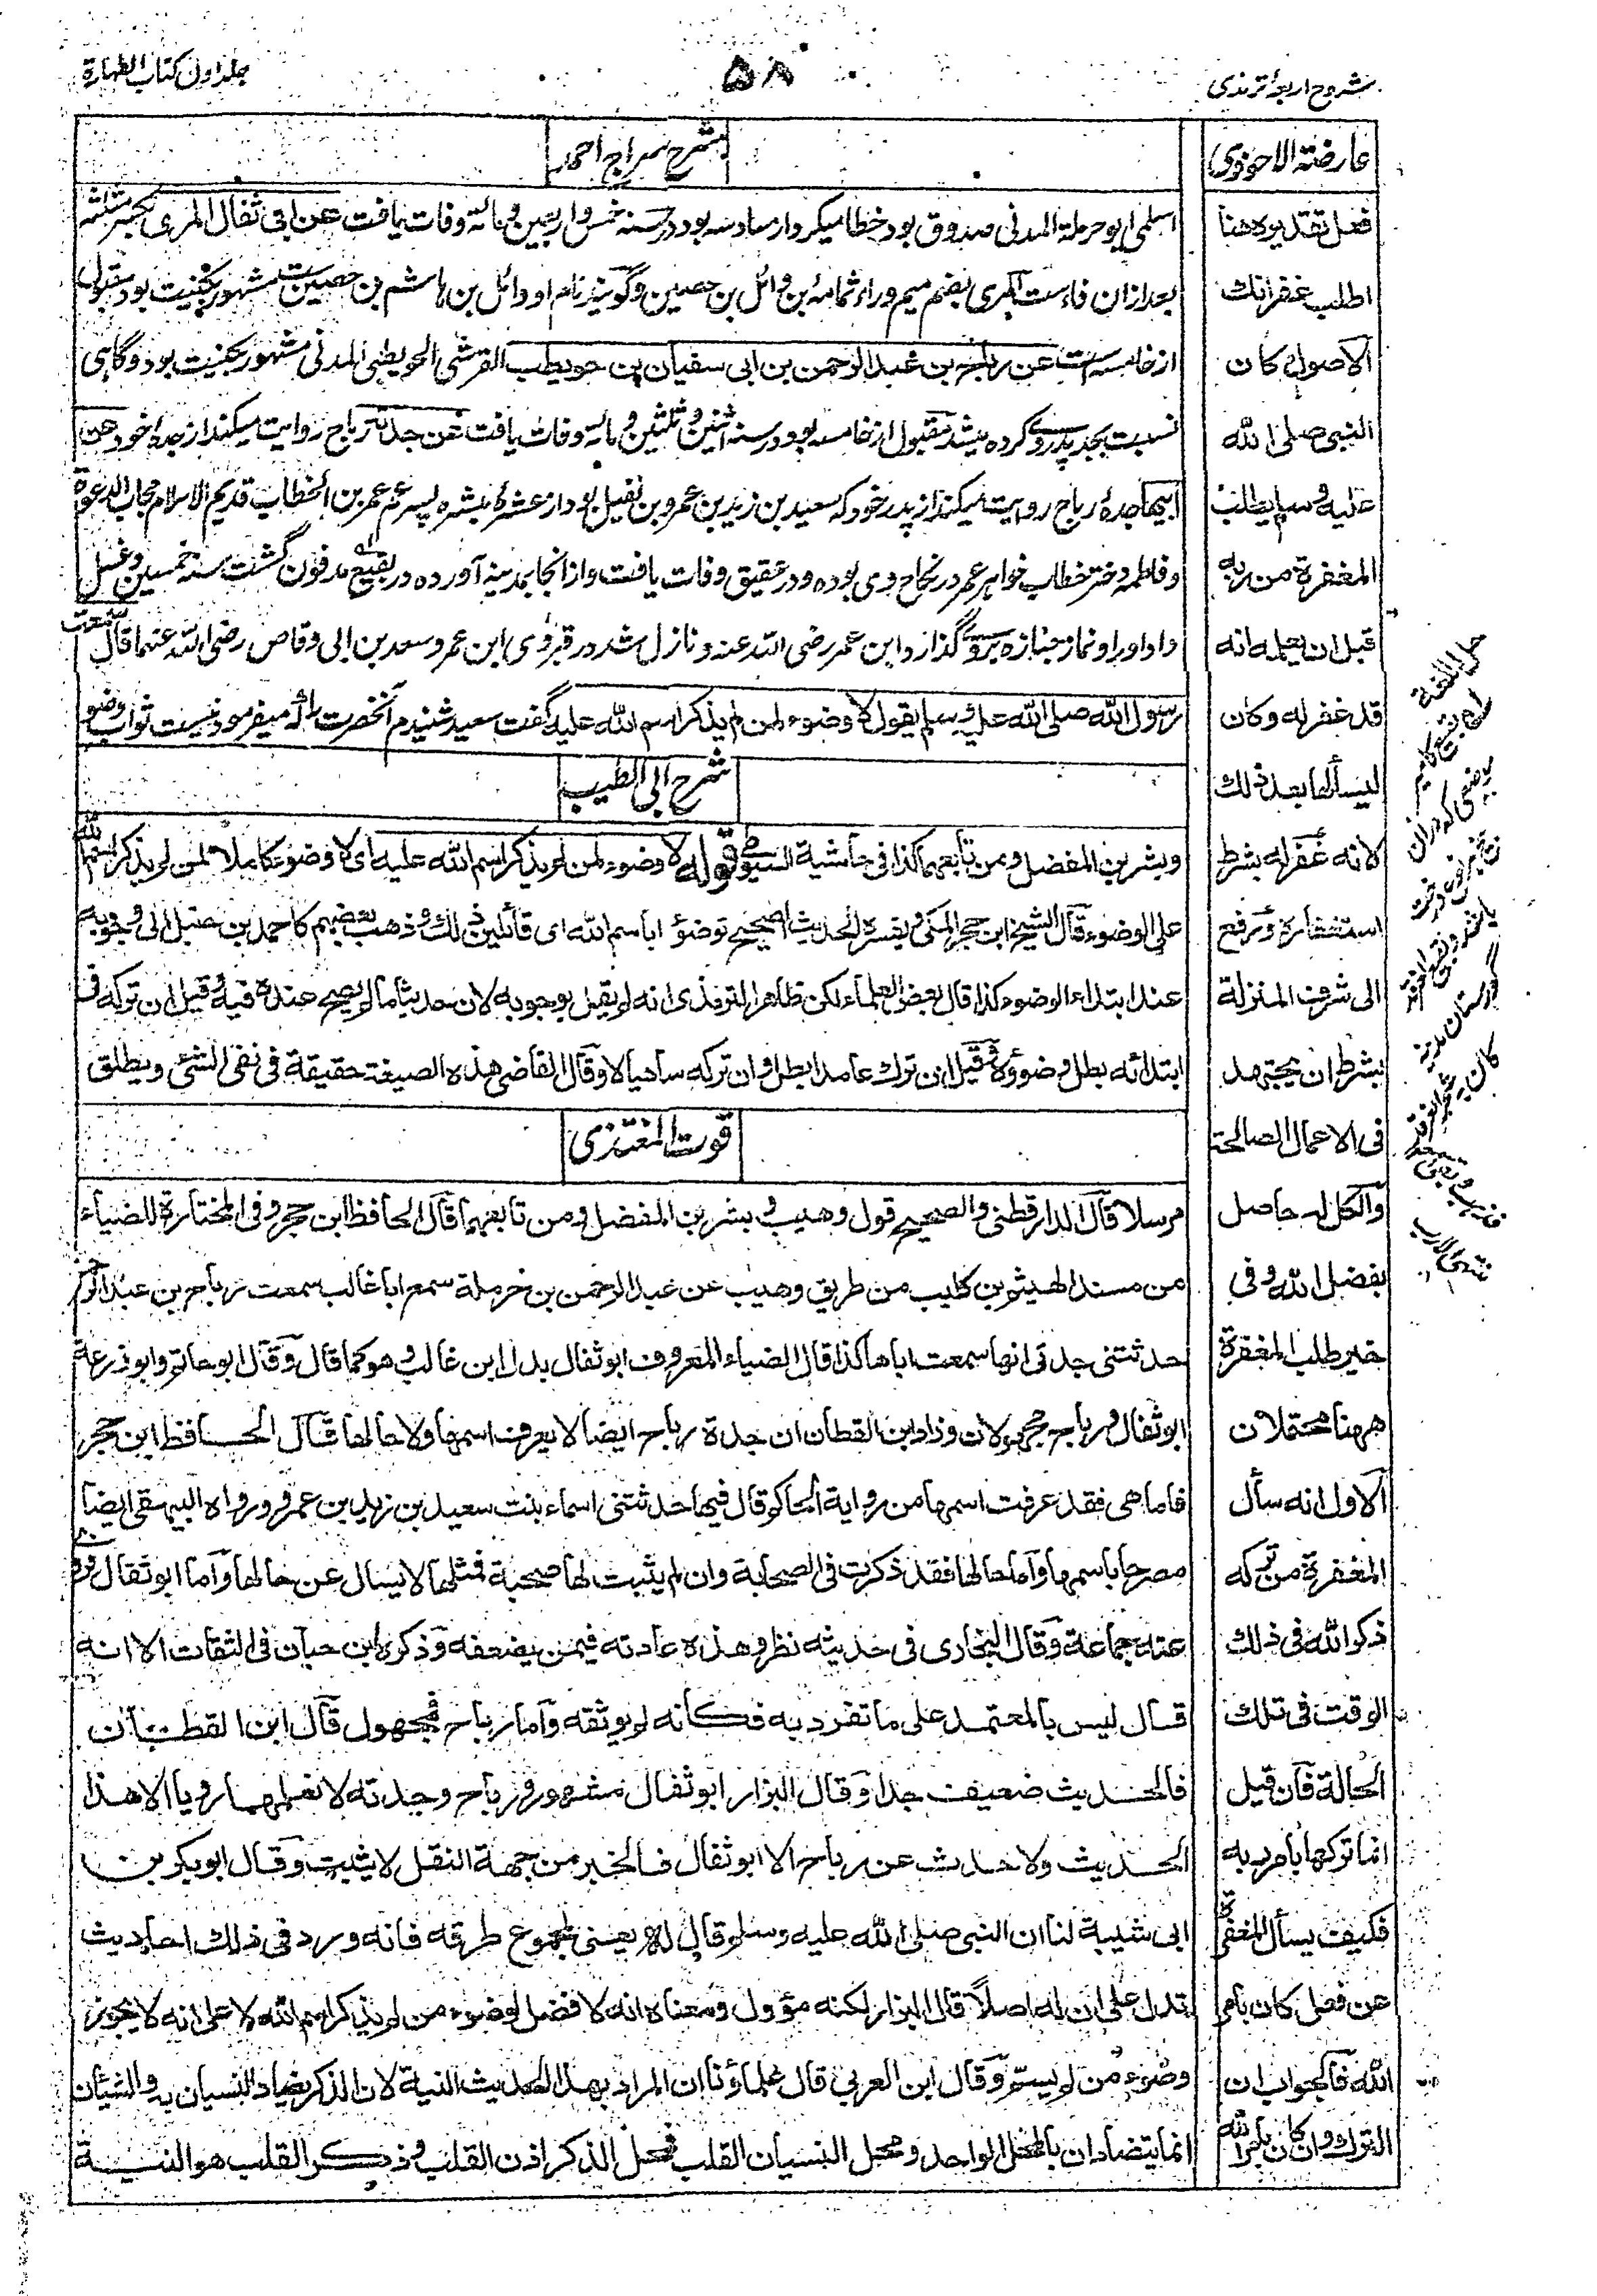 شروح اربعۂ ترمذی
۵۸
جلد اول کتاب الطهارة
عارضة الاحوذی
فعل تقدیره هنا
اطلب غفرانك
الاصول کان
النبی صلی الله
علیه وسلم یطلب
المغفرة من ربه
قبل ان یعلمه انه
قد غفر له وکان
لیسألها بعد ذلك
لانه غفر له بشرط
استغفاره ورفع
الی شرف المنزلة
بشرط ان یجتهد
فی الاعمال الصالحة
والکل له حاصل
بفضل الله وفی
خبر طلب المغفرة
ههنا محتملان
الاول انه سأل
المغفرة من ترکه
ذکر الله فی ذلك
الوقت فی تلك
الحالة فان قیل
انما ترکها بامر ربه
فکیف یسأل المغفرة
عن فصل کان بامر
الله فالجواب ان
الترك وان کان بامر الله
شرح سراج احمد
اسلمی ابو حرملة المدنی صدوق بود خطا میکرد از سادسه بود در سنه خمس واربعین ومائة وفات یافت عن ابی ثفال المری بکسر مثلثه
بعد ازان فاء ست المری بضم میم وراء ثمامۂ بن وائل بن حصین وگویند نام او وائل بن هاشم بن حصین ست مشهور بکنیت بود مقبول
از خامسه است عن رباح بن عبد الرحمن بن ابی سفیان بن حویطب القرشی الحویطبی المدنی مشهور بکنیت بود وگاهی
نسبت بجد پدر وی کرده میشد مقبول از خامسه بود در سنه اثنین وثلثین ومائة وفات یافت عن جدته رباح روایت میکند از جده خود عن
ابیها جدۂ رباح روایت میکند از پدر خود که سعید بن زید بن عمرو بن نفیل بود از عشرۂ مبشره پسر عم عمر بن الخطاب قدیم الاسلام مجاب الدعوة
وفاطمه دختر خطاب خواهر عمر در نکاح وی بوده ودر عقیق وفات یافت واز انجا بمدینه آورده در بقیع مدفون گشت سنه خمسین وغسل
داد اورا ونماز جنازه بروی گذارد ابن عمر رضی الله عنه ونازل شد در قبر وی ابن عمر وسعد بن ابی وقاص رضی الله عنهما قال سمعت
رسول الله صلی الله علیه وسلم یقول لا وضوء لمن لم یذکر اسم الله علیه گفت سعید شنیدم آنحضرت را که میفرمود نیست ثواب وضو
شرح ابی الطیب
وبشر بن المفضل ومن تابعهما کذا فی حاشیة السیوطی قوله لا وضوء لمن لم یذکر اسم الله علیه ای لا وضوء کاملا لمن لم یذکر اسم الله
علی الوضوء قال الشیخ ابن حجر المکی ویفسره الحدیث الصحیح توضؤا باسم الله ای قائلین ذلك وذهب بعضهم کاحمد بن حنبل الی وجوبه
عند ابتداء الوضوء کذا قال بعض العلماء لکن ظاهر الترمذی انه لم یقل بوجوبه لان حدیثا ما لم یصح عنده فیه وقیل ان ترکه فی
ابتدائه بطل وضوؤه وقیل ان ترك عامدا بطل وان ترکه ساهیا لا وقال القاضی هذه الصیغة حقیقة فی نفی الشئ ویطلق
قوت المغتذی
مرسلا قال الدارقطنی والصحیح قول وهیب وبشر بن المفضل ومن تابعهما قال الحافظ ابن حجر وفی المختارة للضیاء
من مسند الهیثم بن کلیب من طریق وهیب عن عبد الرحمن بن حرملة سمع ابا غالب سمعت رباح بن عبد الرحمن
حدثتنی جدتی انها سمعت اباها کذا قال الضیاء المعروف ابو ثفال بدل ابن غالب وهو کما قال وقال ابو حاتم وابو زرعة
ابو ثفال ورباح مجهولان وزاد ابن القطان ان جدة رباح ایضا لا یعرف اسمها ولا حالها قال الحافظ ابن حجر
فاما هی فقد عرفت اسمها من روایة الحاکم وقال فیها حدثتنی اسماء بنت سعید بن زید بن عمرو ورواه البیهقی ایضا
مصرحا باسمها واما حالها فقد ذکرت فی الصحابة وان لم یثبت لها صحبة فمثلها لا یسال عن حالها واما ابو ثفال فروی
عنه جماعة وقال البخاری فی حدیثه نظر وهذه عادته فیمن یضعفه وذکره ابن حبان فی الثقات الا انه
قال لیس بالمعتمد علی ما تفرد به فکأنه لم یوثقه واما رباح فمجهول قال ابن القطان
فالحدیث ضعیف جدا وقال البزار ابو ثفال مشهور ورباح وجدته لا نعلمهما رویا الا هذا
الحدیث ولا حدث عن رباح الا ابو ثفال فالخبر من جهة النقل لا یثبت وقال ابو بکر بن
ابی شیبة لنا ان النبی صلی الله علیه وسلم قاله یعنی لمجموع طرقه فانه ورد فی ذلك احادیث
تدل علی ان له اصلاً قال البزار لکنه مؤول ومعناه انه لا فضل لوضوء من لم یذکر اسم الله لا علی انه لا یجوز
وضوء من لم یسم وقال ابن العربی قال علماؤنا ان المراد بهذا الحدیث النیة لان الذکر یضاد النسیان به والشیئان
انما یتضادان بالمحل الواحد ومحل النسیان القلب فمحل الذکر اذن القلب وذکر القلب هو النیة
حل اللغة
گورستان مدینه
منتهی الارب